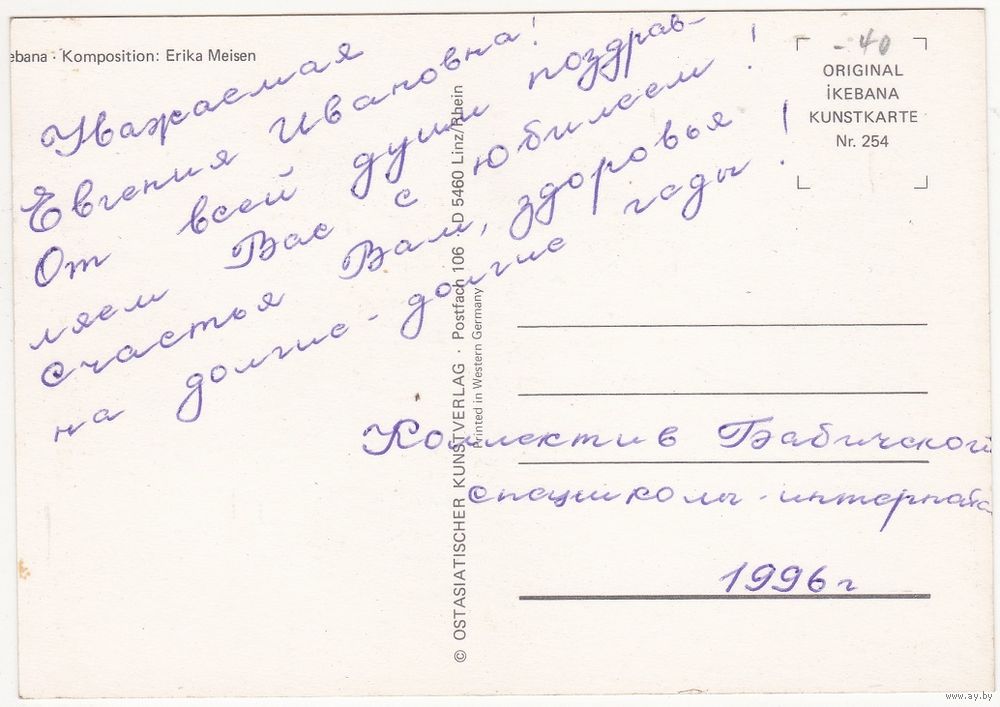 ebana · Komposition: Erika Meisen
Уважаемая
Евгения Ивановна!
От всей души поздрав-
ляем Вас с юбилеем!
Счастья Вам, здоровья
на долгие-долгие годы!
Коллектив Бабичской
спецшколы-интерната
1996 г
-40
ORIGINAL
İKEBANA
KUNSTKARTE
Nr. 254
© OSTASIATISCHER KUNSTVERLAG · Postfach 106 · D 5460 Linz/Rhein
Printed in Western Germany
www.ay.by